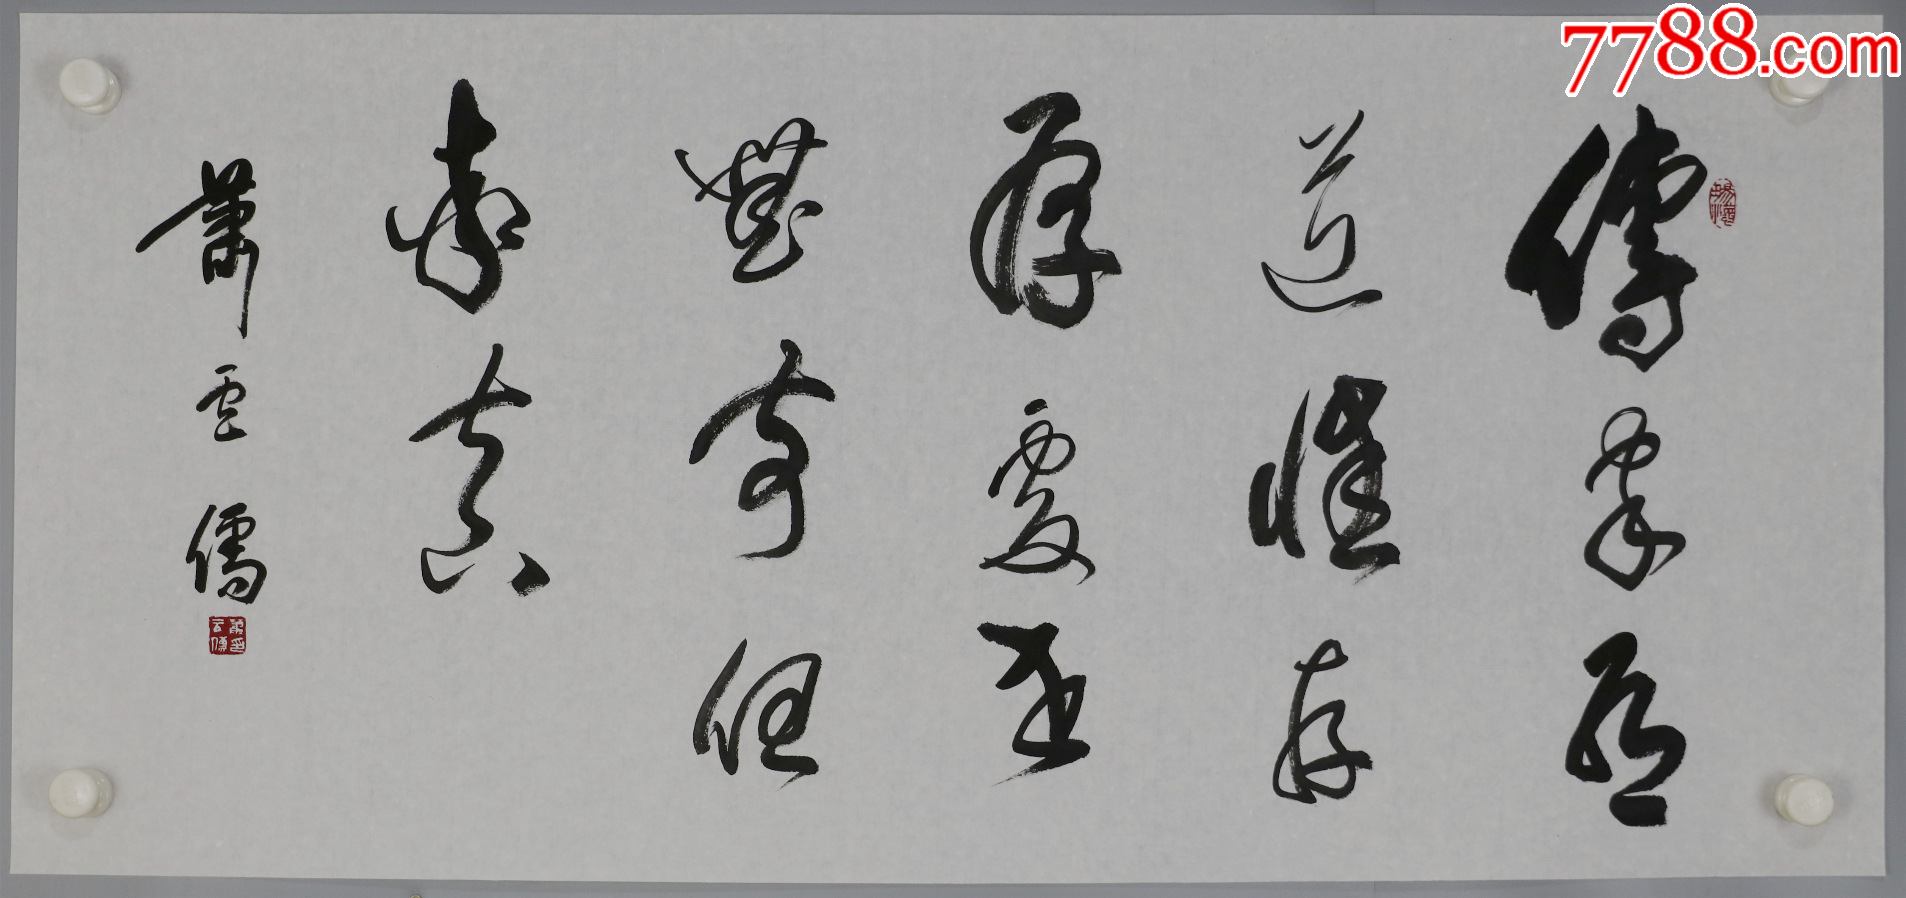 傳家有
道惟存
厚處世
無奇但
率真
蕭雲儒
7788.com